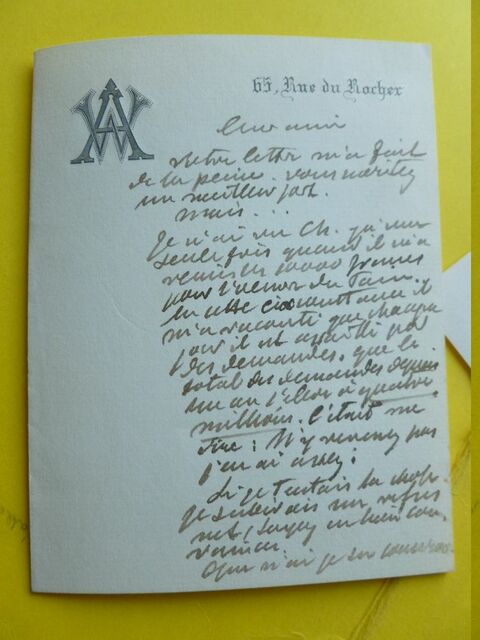 WA
65, Rue du Rocher
Cher ami
Votre lettre m'a fait
de la peine. vous méritez
un meilleur sort.
mais...
Je n'ai vu Ch. qu'une
seule fois quand il m'a
remis les 10000 francs
pour l'
En cette circonstance il
m'a raconté que chaque
jour il est assailli par
des demandes. que le
total des demandes depuis
un an s'élève à quatre
millions. C'était me
dire: N'y revenez pas
j'en ai assez.
Si je tentais la chose
je subirais un refus
net, soyez en bien con-
vaincu.
Que n'ai je su conserver